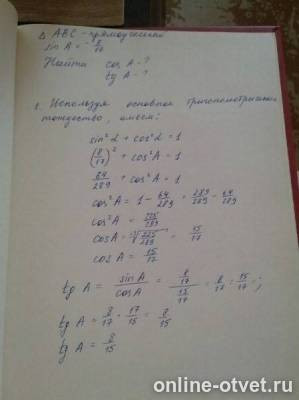 Δ ABC - прямоугольный
sin A = - 8/17
Найти cos A - ?
tg A - ?
1. Используя основное тригонометрическое
тождество, имеем:
sin² α + cos² α = 1
(8/17)² + cos² A = 1
64/289 + cos² A = 1
cos² A = 1 - 64/289 = 289/289 - 64/289
cos² A = 225/289
cos A = √225/289 = 15/17
cos A = 15/17
tg A = sin A / cos A = 8/17 / 15/17 = 8/17 : 15/17 ;
tg A = 8/17 · 17/15 = 8/15
tg A = 8/15
online-otvet.ru